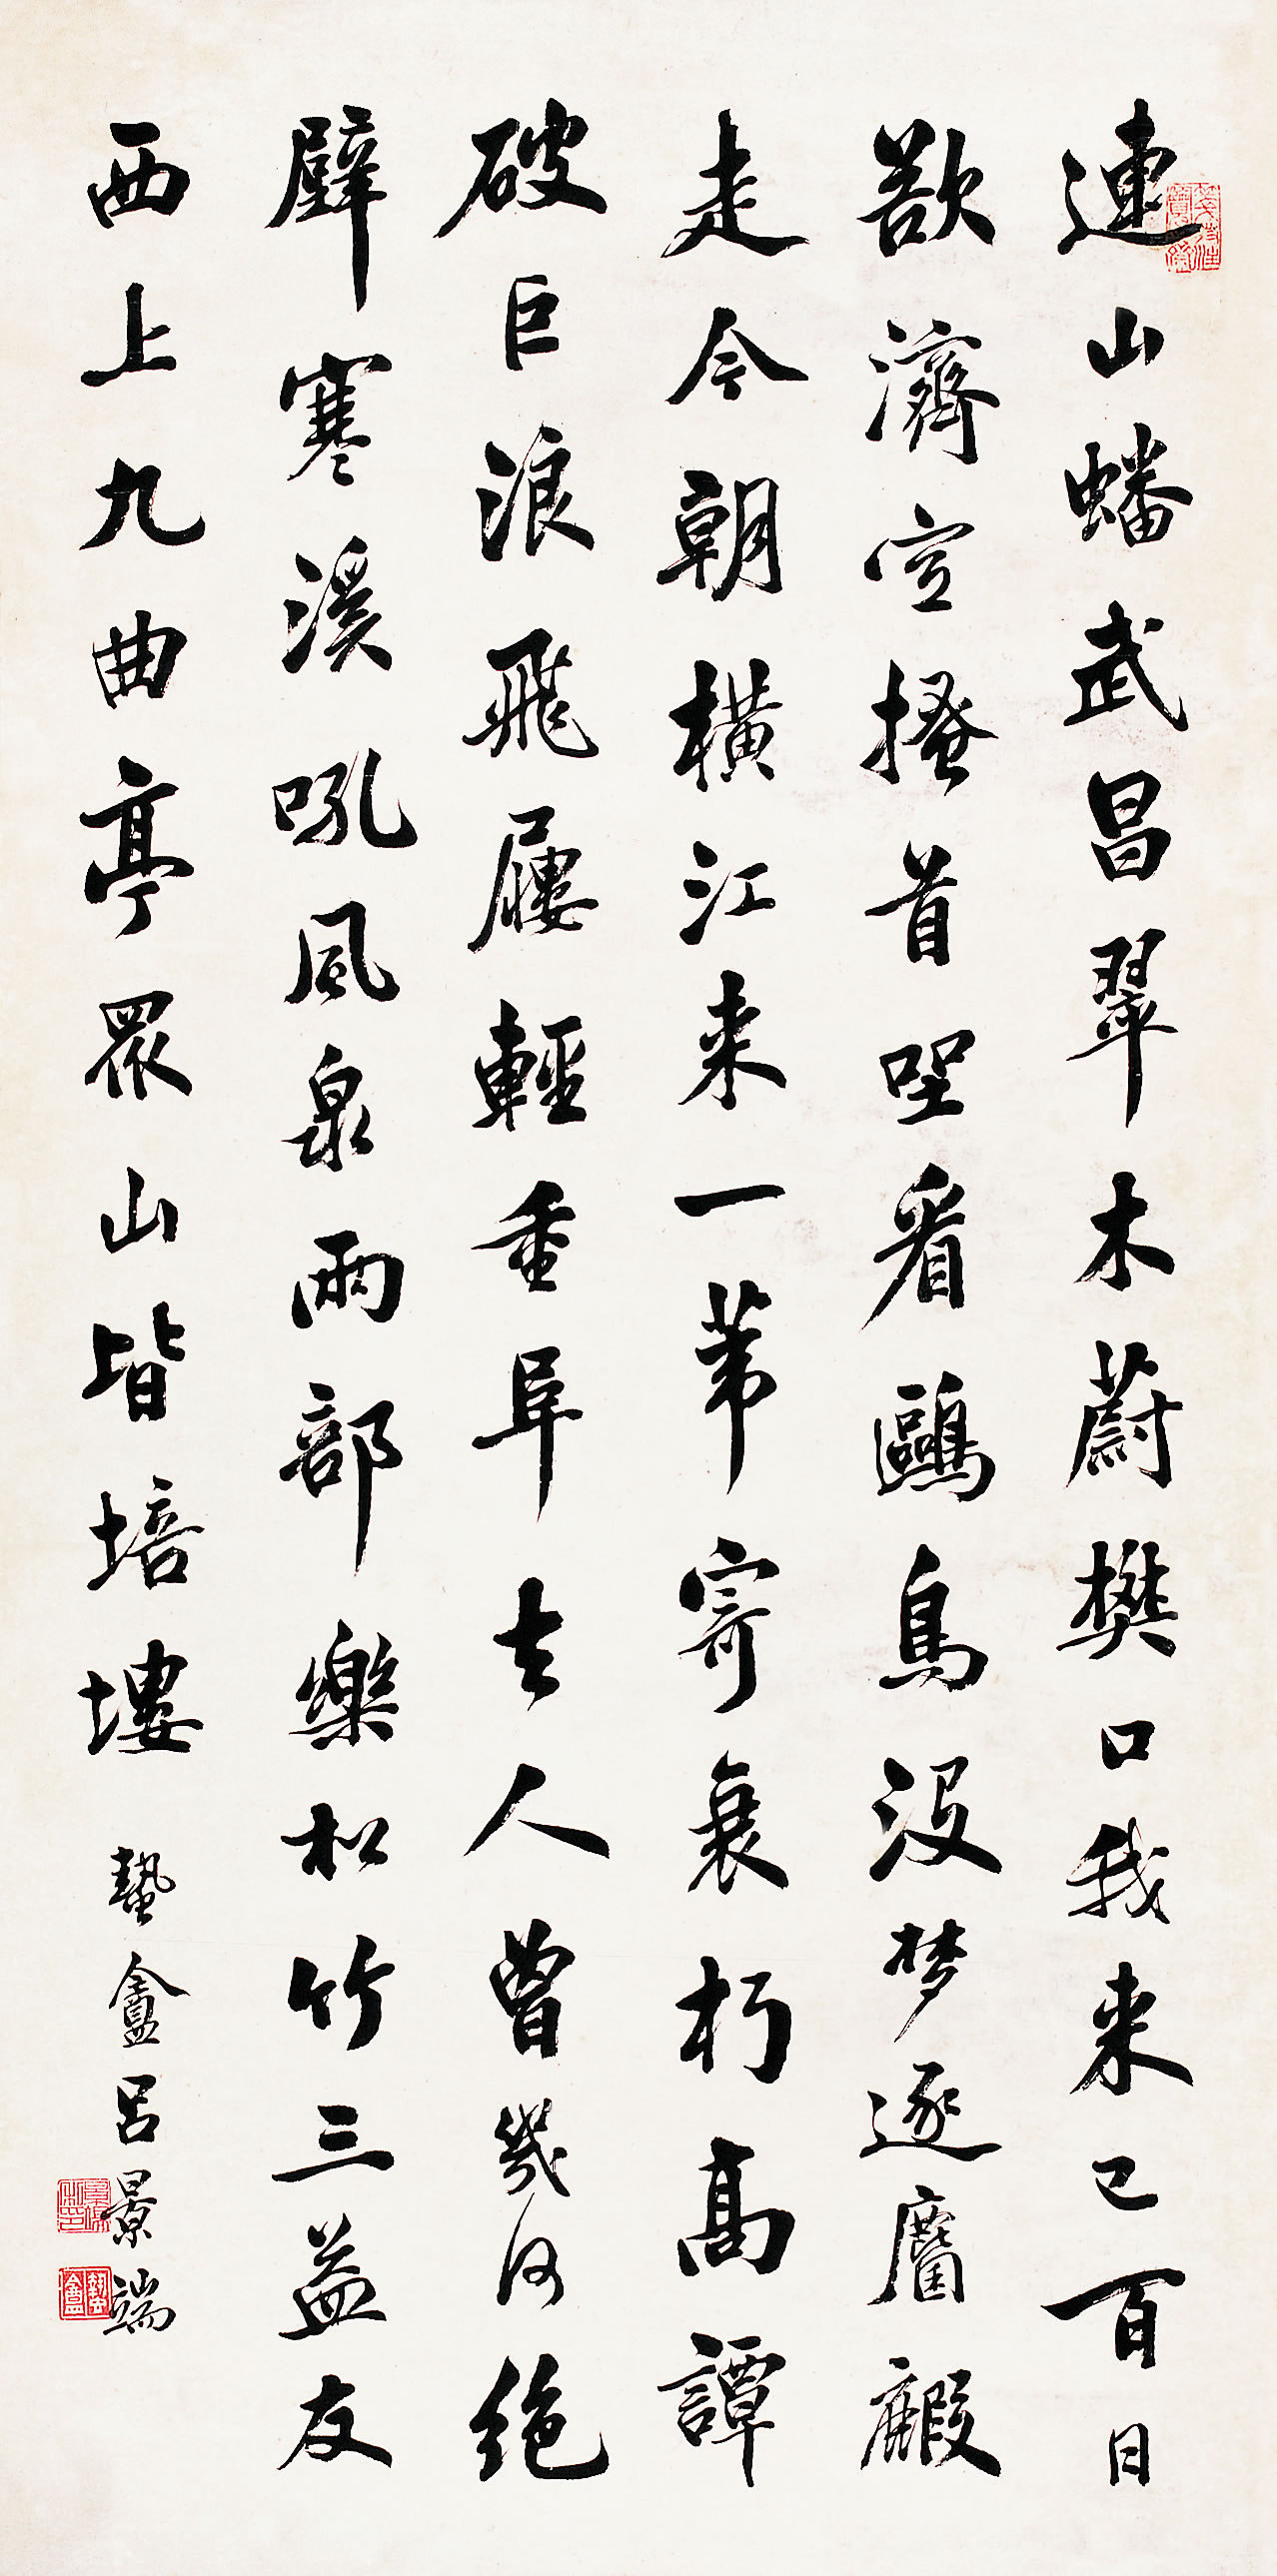 連山蟠武昌翠木蔚樊口我来已百日
欲濟空搔首坐看鷗鳥没梦逐麏麚
走今朝横江来一葦寄衰朽高譚
破巨浪飛屨輕重阜去人曾幾何绝
壁寒溪吼風泉兩部樂松竹三益友
西上九曲亭眾山皆培塿
蟄盦呂景端
景端
蟄盦